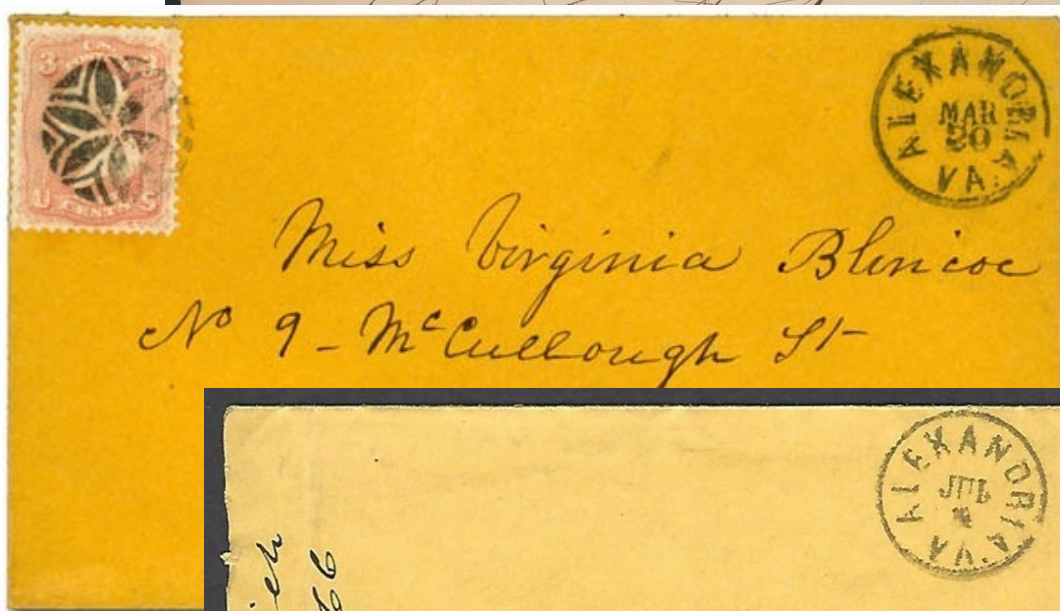 3
U.S.
U CENTS S
ALEXANDRIA
MAR
20
VA.
Miss Virginia Blincoe
No 9 - McCullough St
ALEXANDRIA VA.
JUL
66